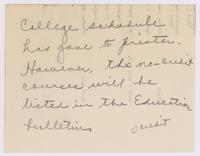 College schedule
has gone to printer.
However, the no-credit
courses will be
listed in the Education
bulletin,
0 credit